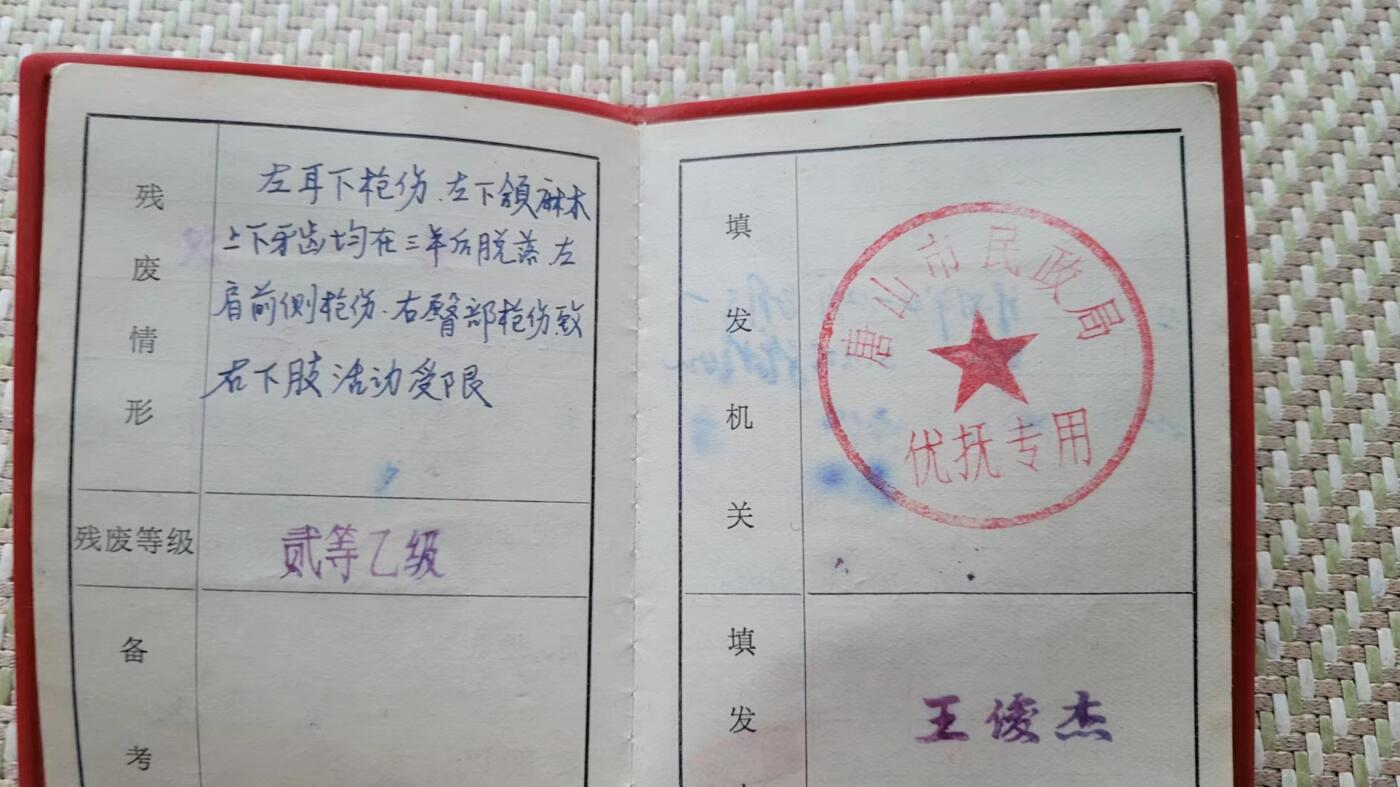 残废情形
左耳下枪伤.左下颌麻木
上下牙齿均在三年后脱落.左
肩前侧枪伤.右臀部枪伤致
右下肢活动受限
残废等级
贰等乙级
备考
填发机关
唐山市民政局
优抚专用
填发
王俊杰